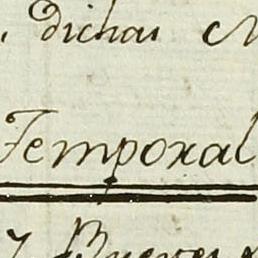 . dichas
Temporal
y Buenos